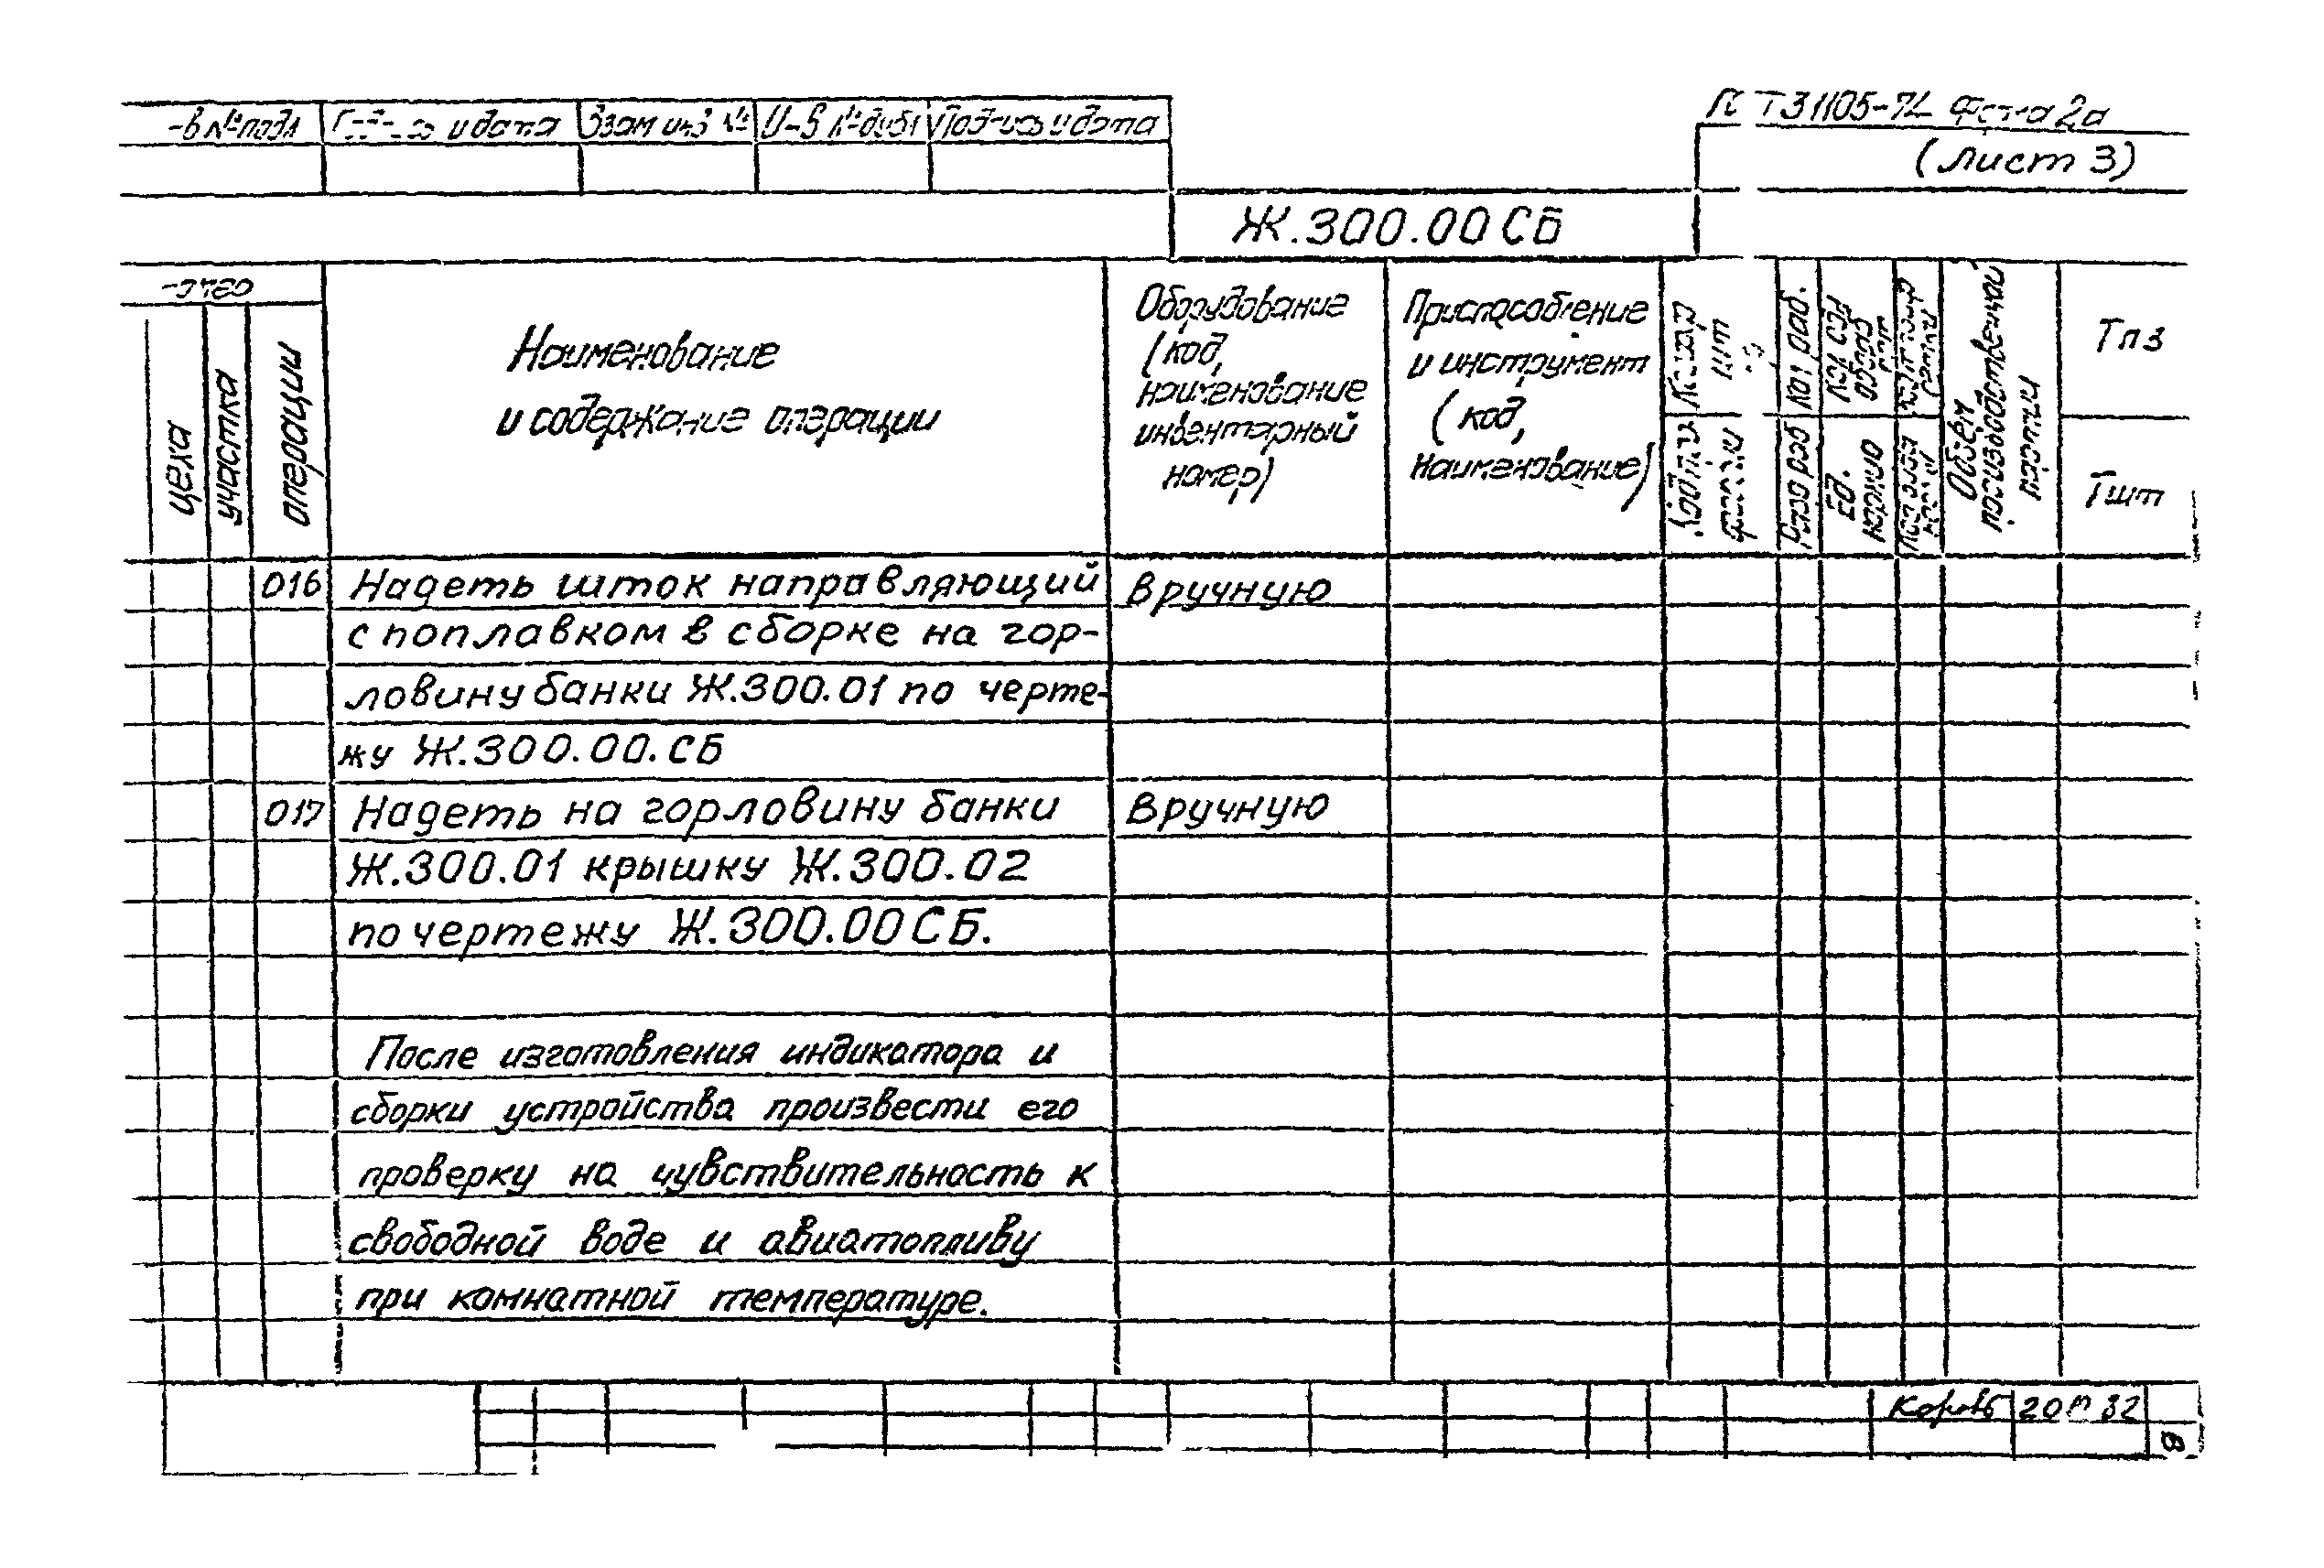 № подл
и дата
Взам инв №
дубл
Подпись и дата
(лист 3)
Ж.300.00 СБ
цеха
участка
операции
Наименование
и содержание операции
Оборудование
(код,
наименование
инвентарный
номер)
Приспособление
и инструмент
(код,
Наименование)
раб.
Ед.
Объем
производственной
партии
Тпз
Тшт
016 Надеть шток направляющий Вручную
с поплавком в сборке на гор-
ловину банки Ж.300.01 по черте-
жу Ж.300.00.СБ
017 Надеть на горловину банки Вручную
Ж.300.01 крышку Ж.300.02
по чертежу Ж.300.00 СБ.
После изготовления индикатора и
сборки устройства произвести его
проверку на чувствительность к
свободной воде и авиатопливу
при комнатной температуре.
8